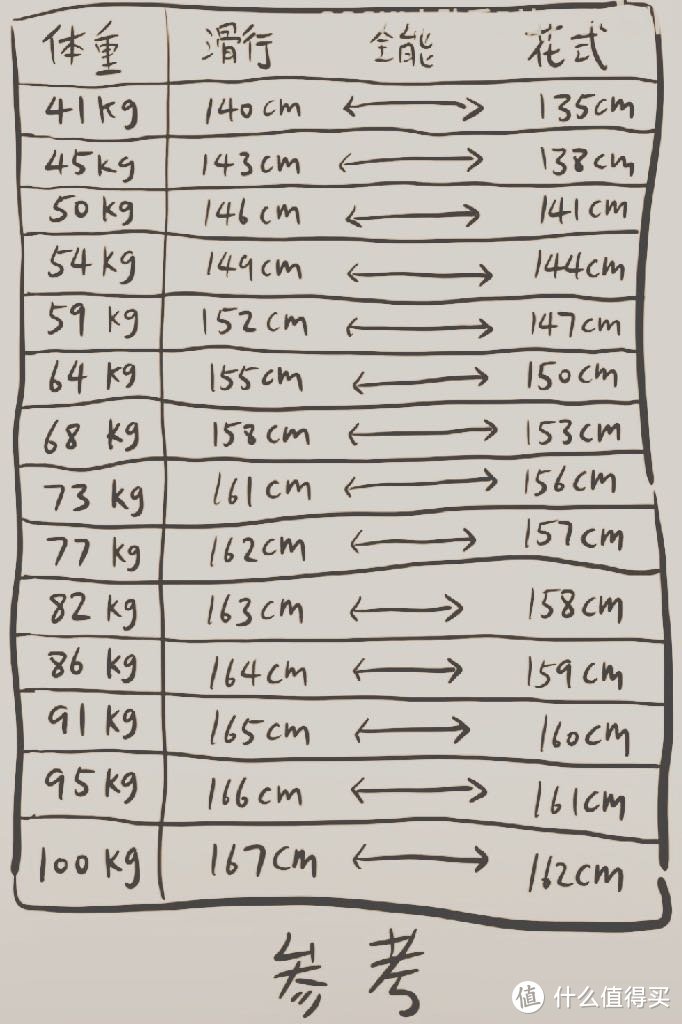 体重 滑行 全能 花式
41kg 140cm 135cm
45kg 143cm 138cm
50kg 146cm 141cm
54kg 149cm 144cm
59 kg 152cm 147cm
64 kg 155cm 150cm
68 kg 158cm 153cm
73 kg 161cm 156cm
77 kg 162cm 157cm
82 kg 163cm 158cm
86 kg 164cm 159cm
91 kg 165cm 160cm
95 kg 166cm 161cm
100 kg 167cm 162cm
参考
值 什么值得买